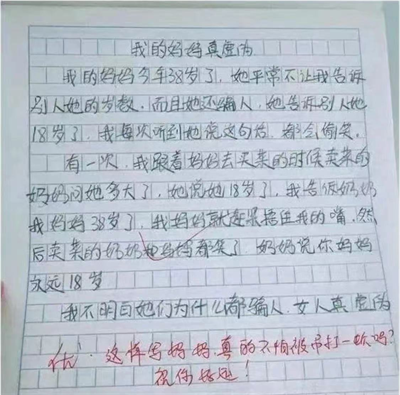 我的妈妈真虚伪
我的妈妈今年38岁了，她平常不让我告诉
别人她的岁数，而且她还骗人，她告诉别人她
18岁了，我每次听到她说这句话，都会偷笑。
有一次，我跟着妈妈去买菜的时候卖菜的
奶奶问她多大了，她说她18岁了，我告诉奶奶
我妈妈38岁了，我妈妈就赶紧捂住我的嘴，然
后卖菜的奶奶和妈妈都笑了 奶奶说你妈妈
永远18岁
我不明白她们为什么都骗人，女人真虚伪
优·这样写妈妈，真的不怕被吊打一顿吗？
祝你好运！